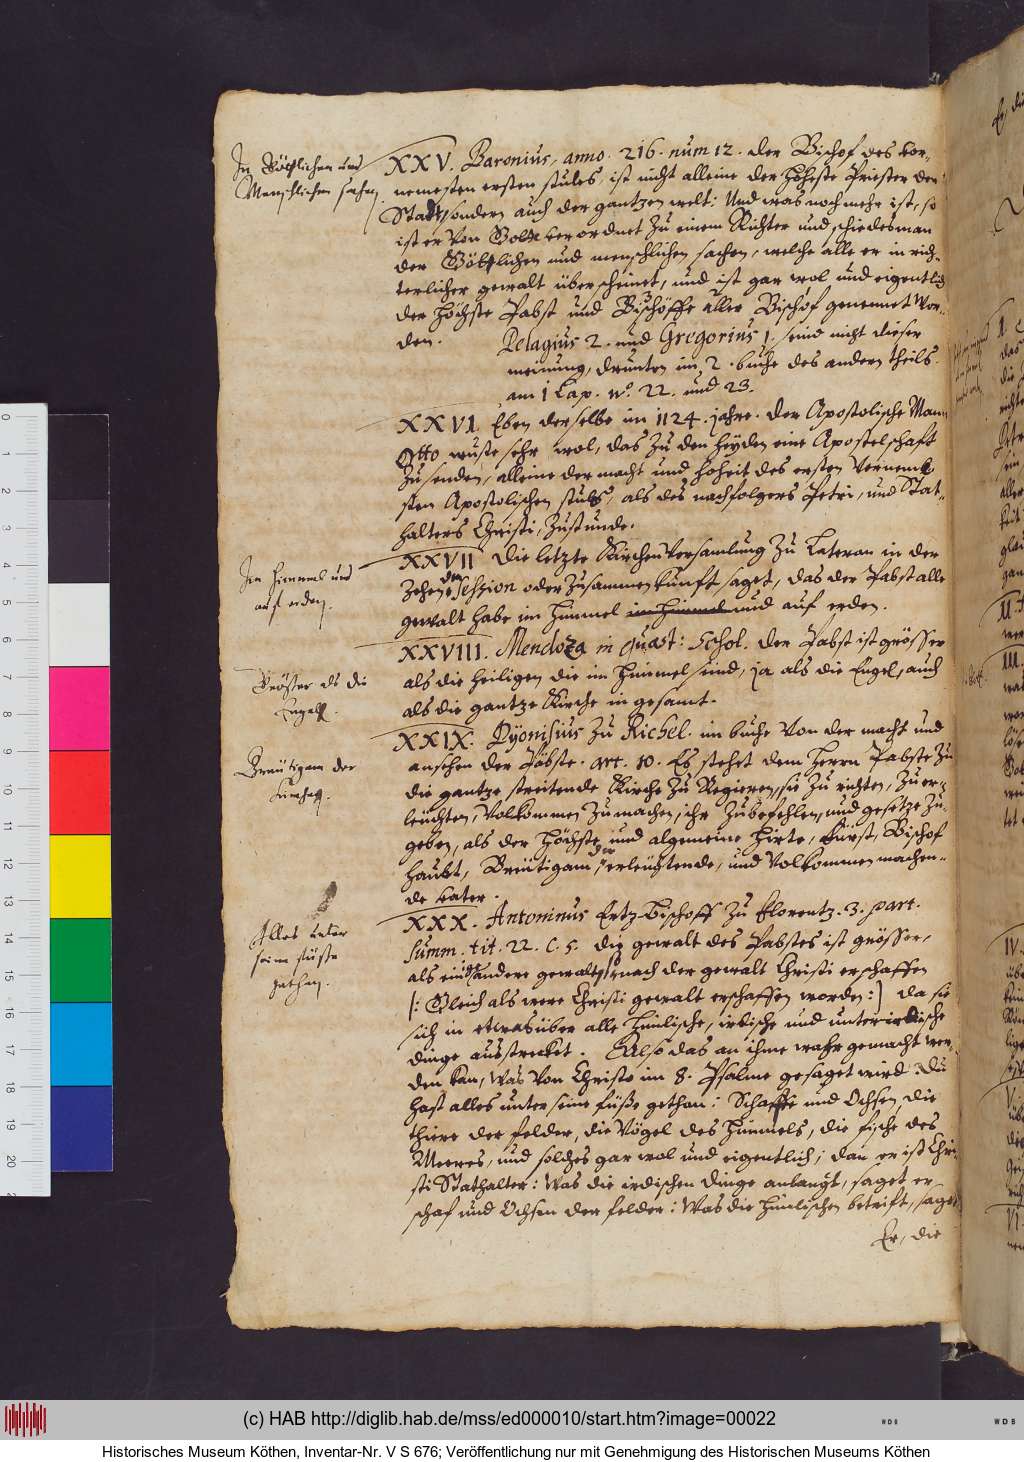 In Göttlichen und
Menschlichen sachen.
XXV. Baronius, anno. 216. num 12. der Bischof des vor-
nemesten ersten stules, ist nicht alleine der höheste Priester der
Stadt, sondern auch der gantzen welt: Und was noch mehr ist, so
ist er von Gott verordnet zu einem Richter und schiedesman
der Göttlichen und menschlichen sachen, welche alle er in rich-
terlicher gewalt überscheinet, und ist gar wol und eigentlich
der höchste Pabst und Bischöffe aller Bischof genennet wor-
den. Pelagius 2. und Gregorius 1. seind nicht dieser
meinung, drunten im 2. buche des andern theils.
am 1 Cap. nº. 22. und 23.
XXVI. Eben derselbe im 1124. jahre. der Apostolische Mann
Otto wuste sehr wol, das zu den Heyden eine Apostelschaft
zu senden, alleine der macht und hoheit des ersten vernem-
sten Apostolischen stuls, als des nachfolgers Petri, und Stat-
halters Christi, zustunde.
In himmel und
auf erden.
XXVII Die letzte Kirchenversamlung zu Lateran in der
Zehenden Session oder zusammenkunft saget, das der Pabst alle
gewalt habe im himmel im himmel und auf erden.
Grösser als die
Engell.
XXVIII. Mendoza in quæst: Schol. der Pabst ist grösser
als die heiligen die im himmel sind, ja als die Engel, auch
als die gantze Kirche in gesamt.
Breutigam der
Kirchen.
XXIX. Dyonisius zu Richel. im buche von der macht und
ansehen der Päbste. art. 10. Es stehet dem Herrn Pabste zu
die gantze streitende Kirche zu Regieren, sie zu richten, zu er-
leuchten, volkommen zumachen, ihr zubefehlen, und gesetze zu-
geben, als der höchste und algemeine Hirte, fürst, Bischof
haubt, Breutigam, der erleuchtende, und volkommen machen-
de vater.
Alles unter
seine füsse
gethan.
XXX. Antoninus Ertz-Bischoff zu Florentz. 3. part.
summ. tit. 22. c. 5. die gewalt des Pabstes ist grösser,
als eine andere gewalt, so nach der gewalt Christi erschaffen
[: Gleich als were Christi gewalt erschaffen worden:] da sie
sich in etwas über alle himlische, irdische und unterirdische
dinge ausstrecket. Also das an ihme wahr gemacht wer-
den kan, Was von Christo im 8. Psalme gesaget wird: du
hast alles unter seine füße gethan: Schaffe und Ochsen, die
thiere der felder, die vögel des himmels, die fische des
Meeres, und solches gar wol und eigentlich; dan er ist Chri-
sti Stathalter: Was die irdischen dinge anlangt, saget er
schaf und Ochsen der felder: Was die himlischen betrift, saget
Er, die
(c) HAB http://diglib.hab.de/mss/ed000010/start.htm?image=00022
Historisches Museum Köthen, Inventar-Nr. V S 676; Veröffentlichung nur mit Genehmigung des Historischen Museums Köthen